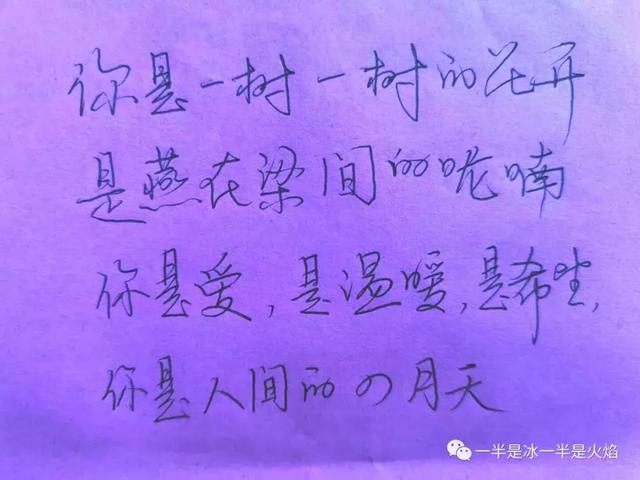 你是一树一树的花开
是燕在梁间的呢喃
你是爱，是温暖，是希望，
你是人间的四月天
一半是冰一半是火焰